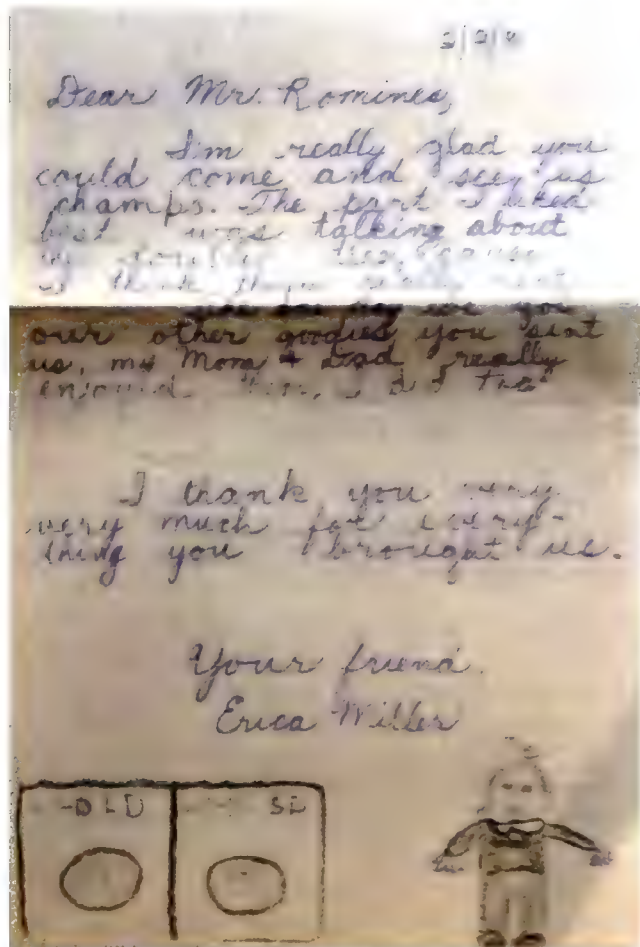 Dear Mr. Romines,
I'm really glad you
could come and see us
champs. The part I liked
best was talking about
I think
you
our other goodies you sent
us, my Mom + Dad really
enjoyed I did too
I thank you very
very much for every-
thing you brought us.
Your friend.
Erica Miller